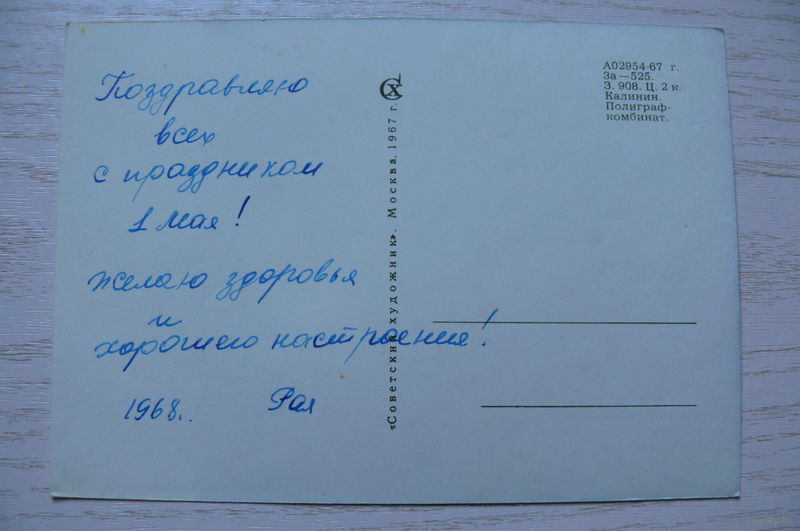 Поздравляю
всех
с праздником
1 Мая!
желаю здоровья
и
хорошего настроения!
1968.. Рая
«Советский художник». Москва. 1967 г.
А02954-67 г.
За—525.
З. 908. Ц. 2 к.
Калинин.
Полиграф-
комбинат.